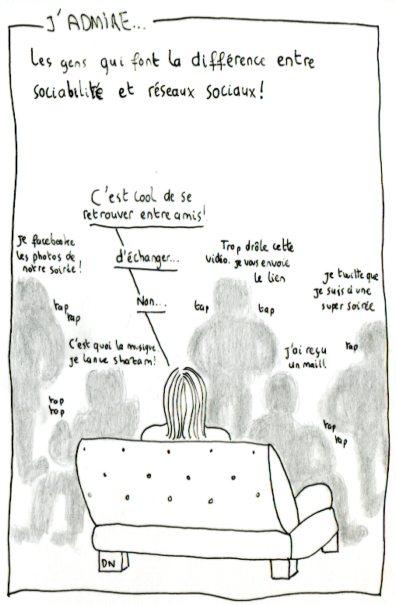 J'ADMIRE...
Les gens qui font la différence entre
sociabilité et réseaux sociaux !
C'est cool de se
retrouver entre amis !
d'échanger...
Non...
Je facebooke
les photos de
notre soirée !
Trop drôle cette
vidéo. Je vous envoie
le lien
Je twitte que
je suis à une
super soirée
tap
tap
tap
tap
C'est quoi la musique
je lance shazam !
J'ai reçu
un mail !
tap
tap
tap
tap
tap
DN